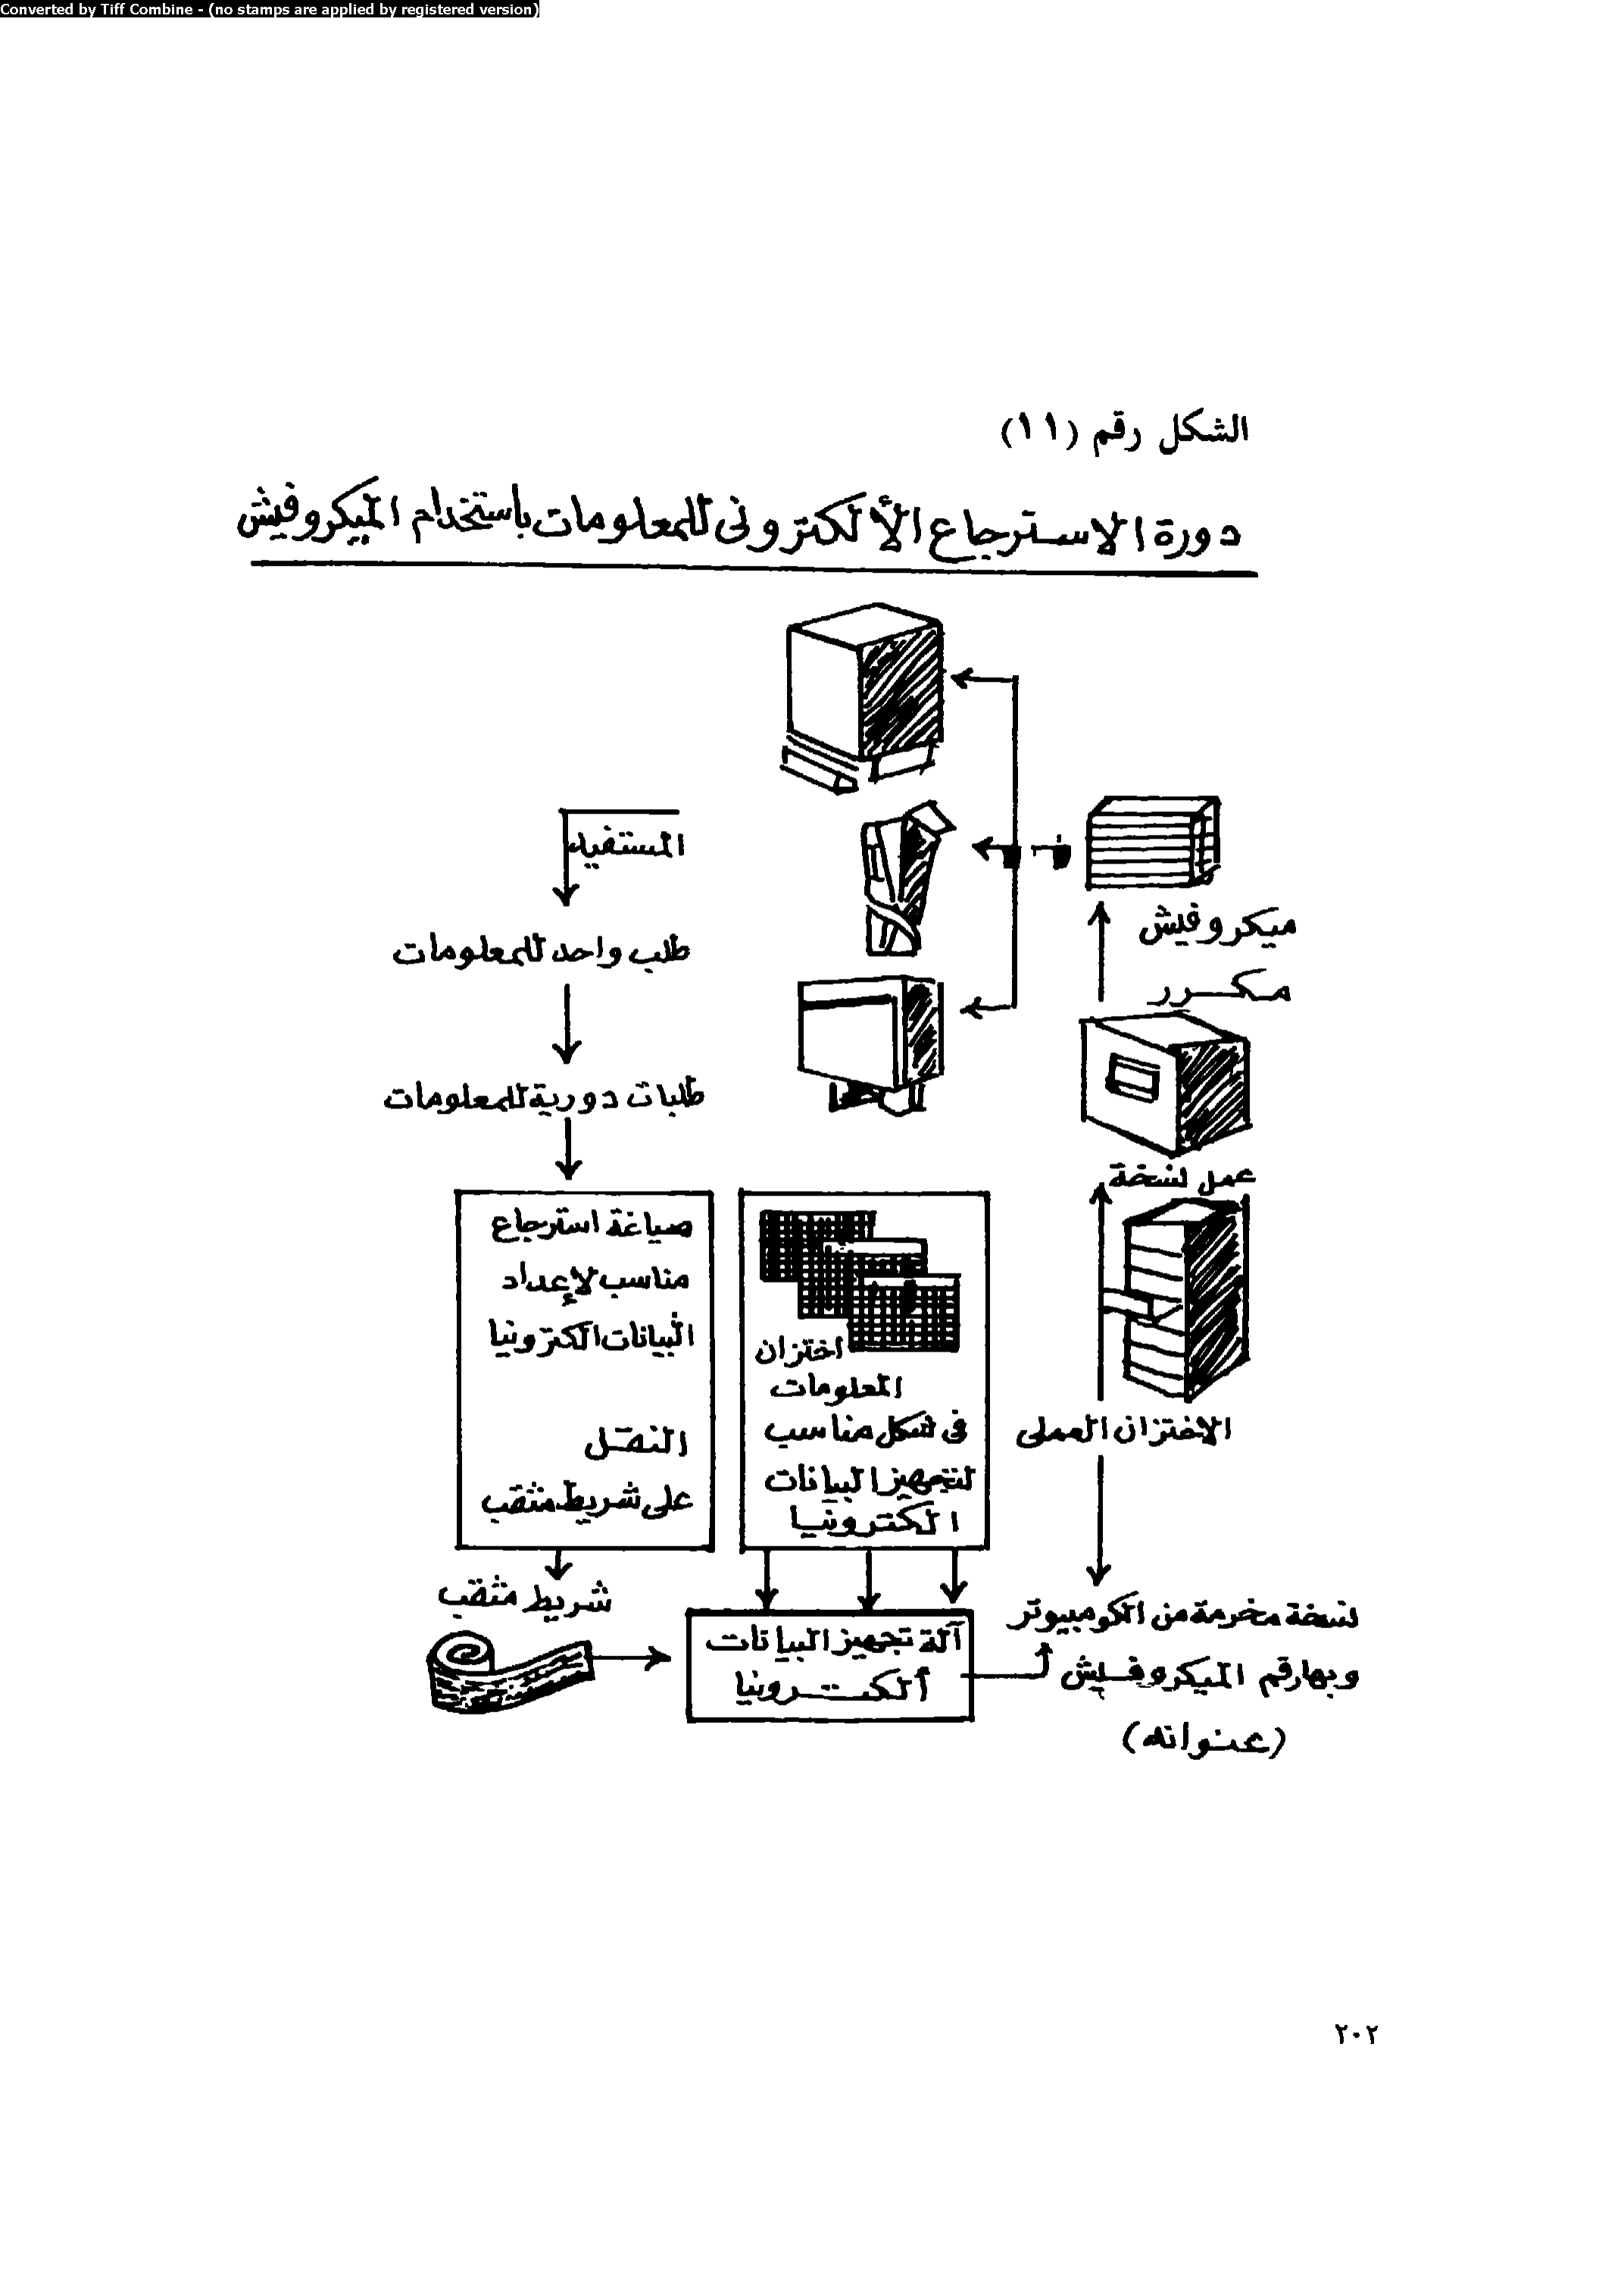 Converted by Tiff Combine - (no stamps are applied by registered version)
الشكل رقم (١١)
دورة الاسترجاع الألكترونى للمعلومات باستخدام الميكروفيش
المستفيد
طلب واحد للمعلومات
طلبات دورية للمعلومات
صياغة استرجاع
مناسب لإعداد
البيانات الكترونيا
النقل
على شريط مثقب
شريط مثقب
اختزان
المعلومات
فى شكل مناسب
لتجهيز البيانات
الكترونيا
آلة تجهيز البيانات
ألكترونيا
ميكروفيش
مكرر
عمل نسخة
الاختزان العملى
نسخة مخرمة من الكومبيوتر
وبها رقم الميكروفيش
(عنوانه)
٢٠٢